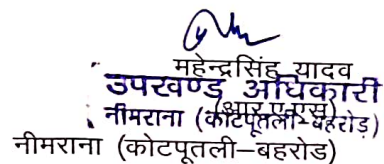 महेन्द्रसिंह यादव
उपखण्ड अधिकारी
(आर.ए.एस)
नीमराना (कोटपूतली-बहरोड़)
नीमराना (कोटपूतली–बहरोड)